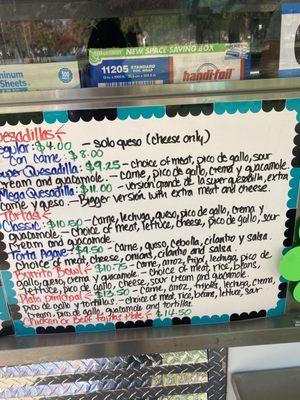 NEW SPACE-SAVING BOX
11205 STANDARD FOIL WRAP
handi-foil
minum
Sheets
500
esadillas
gular $4.00 - solo queso (cheese only)
Con carne $8.00
Super Quesadilla: $9.25 - choice of meat, pico de gallo, sour
cream and guacamole. - Carne, pico de gallo, crema y guacamole
Mega Quesadilla: $11.00 - version grande de la super quesadilla, extra
carne y queso. - Bigger version with extra meat and cheese.
Tortas
Classic: $10.50 - Carne, lechuga, queso, pico de gallo, crema y
guacamole. - Choice of meat, lettuce, cheese, pico de gallo, sour
cream and guacamole.
Torta Alpane: $9.50 - Carne, queso, cebolla, cilantro y salsa.
- Choice of meat, cheese, onions, cilantro and salsa.
Burrito Bowl: $10.75 - Carne, arroz, frijol, lechuga, pico de
gallo, queso, crema y guacamole. - Choice of meat, rice, beans,
lettuce, pico de gallo, cheese, sour cream and guacamole.
Plato principal: $13.50 - Carne, arroz, frijoles, lechuga, crema,
pico de gallo y tortillas. - choice of meat, rice, beans, lettuce, sour
cream, pico de gallo, guacamole and tortillas.
Chicken or Beef Fajitas Plate $14.50